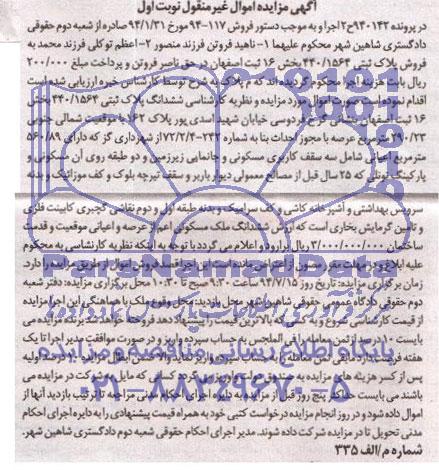 آگهی مزایده اموال غیرمنقول نوبت اول
در پرونده ۹۴۰۱۴۲ح۲ اجرا و به موجب دستور فروش ۱۱۷-۹۴ مورخ ۹۴/۱/۳۱ صادره از شعبه دوم حقوقی
دادگستری شاهین شهر محکوم علیهما ۱-ناهید فروتن فرزند منصور ۲-اعظم توکلی فرزند محمد به
فروش پلاک ثبتی ۴۴۰/۱۵۶۴ بخش ۱۶ ثبت اصفهان در حق ناصر فروتن و پرداخت مبلغ ۲۰۰/۰۰۰
ریال بابت هزینه اجرا محکوم گردیده اند که م پلاک به شرح توسط کارشناس خبره ارزیابی شده است
اقدام نموده است صورت اموال مورد مزایده و نظریه کارشناسی ششدانگ پلاک ثبتی ۴۴۰/۱۵۶۴ بخش
۱۶ ثبت اصفهان فردوسی خیابان شهید اسدی پور پلاک ۱۶۲ با موقعیت شمالی جنوبی
۲۹۰/۲۳ مترمربع عرصه با مجوز احداث بنا به شماره ۲۳۲-۷۲/۲/۴ از شهرداری گز که دارای ۵۶۰/۸۹
مترمربع اعیانی شامل سه سقف کاربری مسکونی و جانمایی زیرزمین و دو طبقه روی آن مسکونی و
پارکینگ تونلی که ۲۵ سال قبل از مصالح معمولی دیوار باربر و سقف تیرچه بلوک و کف موزائیک و بدنه
سرویس بهداشتی و آشپزخانه کاشی و کف سرامیک و بدنه طبقه اول و دوم نقاشی گچبری کابینت فلزی
و تامین گرمایش بخاری است که ارزش ششدانگ ملک مسکونی اعم از عرصه و اعیانی موقعیت و قدمت
ساختمان ۳/۰۰۰/۰۰۰/۰۰۰ ریال برآورد و اعلام می گردد با توجه به اینکه نظریه کارشناسی به محکوم
علیه ابلاغ و در مهلت مقرر مصون از اعتراض مانده است این اجرا قصد فروش اموال از طریق مزایده را دارد.
زمان برگزاری مزایده: تاریخ روز ۹۴/۷/۱۵ ساعت ۹:۳۰ صبح تا ۱۰:۳۰ محل برگزاری مزایده: دفتر شعبه
دوم حقوقی دادگاه عمومی حقوقی شاهین شهر محل بازدید: محل وقوع ملک با هماهنگی این اجرا مزایده
از قیمت کارشناسی شروع و به کسی که بالاترین قیمت را پیشنهاد دهد فروخته خواهد شد. برنده مزایده می
بایست ۱۰ درصد از ثمن معامله را فی المجلس به حساب سپرده واریز و در صورت موافقت مدیر اجرا تا یک
پس از کسر هزینه های مزایده به
باشند می بایست حداکثر پنج روز قبل از مزایده به دایره اجرای احکام مدنی مراجعه تا ترتیب بازدید آنها از
اموال داده شود و در روز انجام مزایده درخواست کتبی خود به همراه قیمت پیشنهادی را به دایره اجرای احکام
مدنی تحویل تا در مزایده شرکت داده شوند. مدیر اجرای احکام حقوقی شعبه دوم دادگستری شاهین شهر.
شماره م/الف ۳۳۵
ParsNamadData
پایگاه اطلاع رسانی مناقصه و مزایده
۰۲۱-۸۸۳۴۹۶۷۰-۵